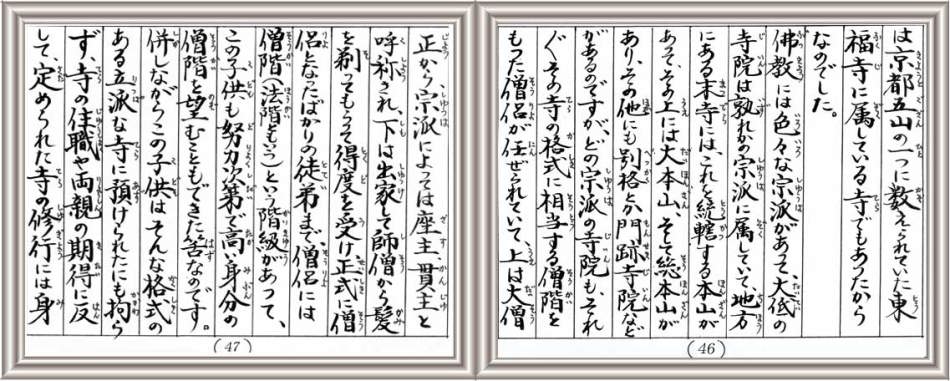 は京都五山の一つに数えられていた東
福寺に属している寺でもあったから
なのでした。
佛教には色々な宗派があって、大低の
寺院は孰れかの宗派に属していて、地方
にある末寺には、これを統轄する本山が
あって、その上には大本山、そして総本山が
あり、その他にも別格とか門跡寺院など
があるのですが、どの宗派の寺院も、それ
〲その寺の格式に相当する僧階を
もった僧侶が任ぜられていて、上は大僧
(46)
正から宗派によっては座主、貫主と
呼称され、下は出家して師僧から髪
を剃ってもらって得度を受け正式に僧
侶となったばかりの徒弟まで、僧侶には
僧階(法階ともいう)という階級があって、
この子供も努力次第で高い身分の
僧階を望むこともできた筈なのです。
併しながらこの子供はそんな格式の
ある立派な寺に預けられたにも拘ら
ず、寺の住職や両親の期得に反
して、定められた寺の修行には身
(47)